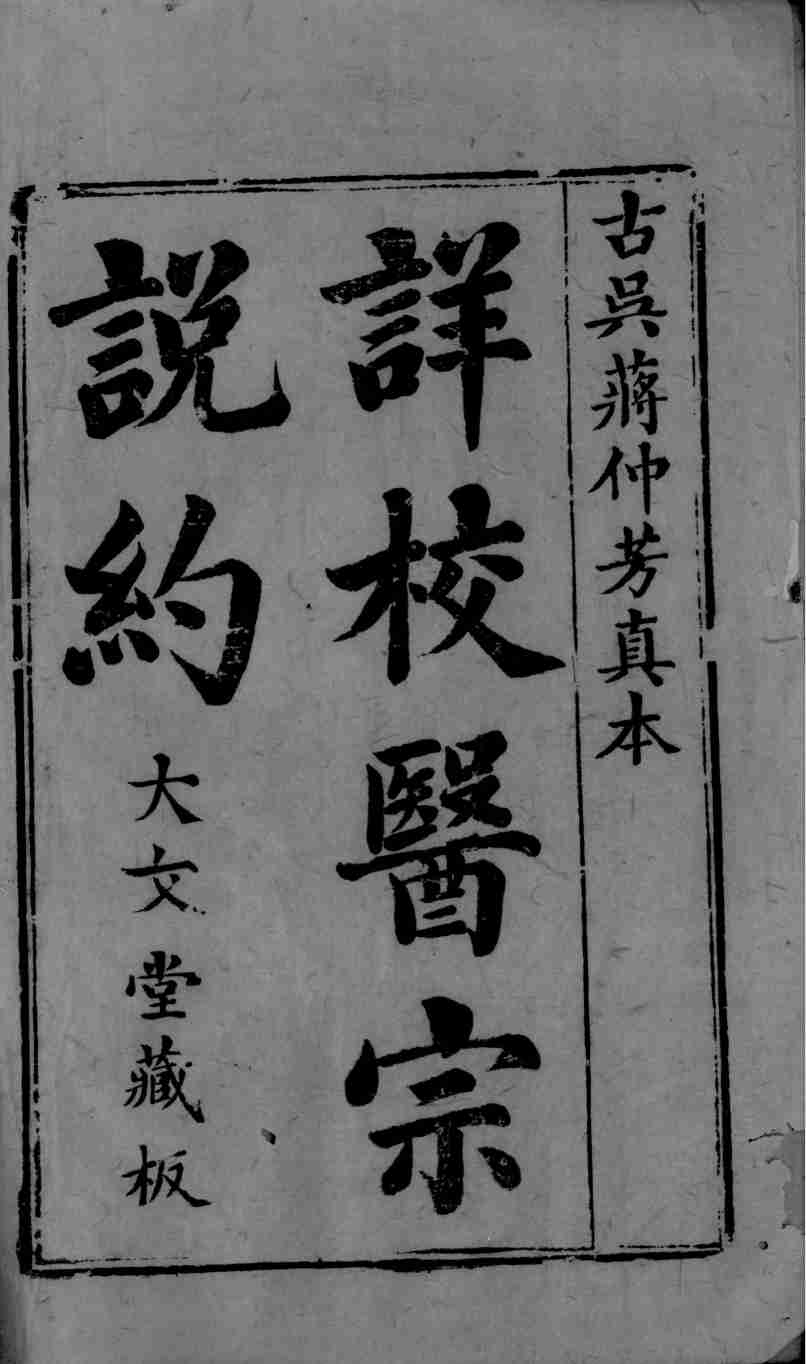 古吳蔣仲芳真本
詳校醫宗
説約
大文堂藏板